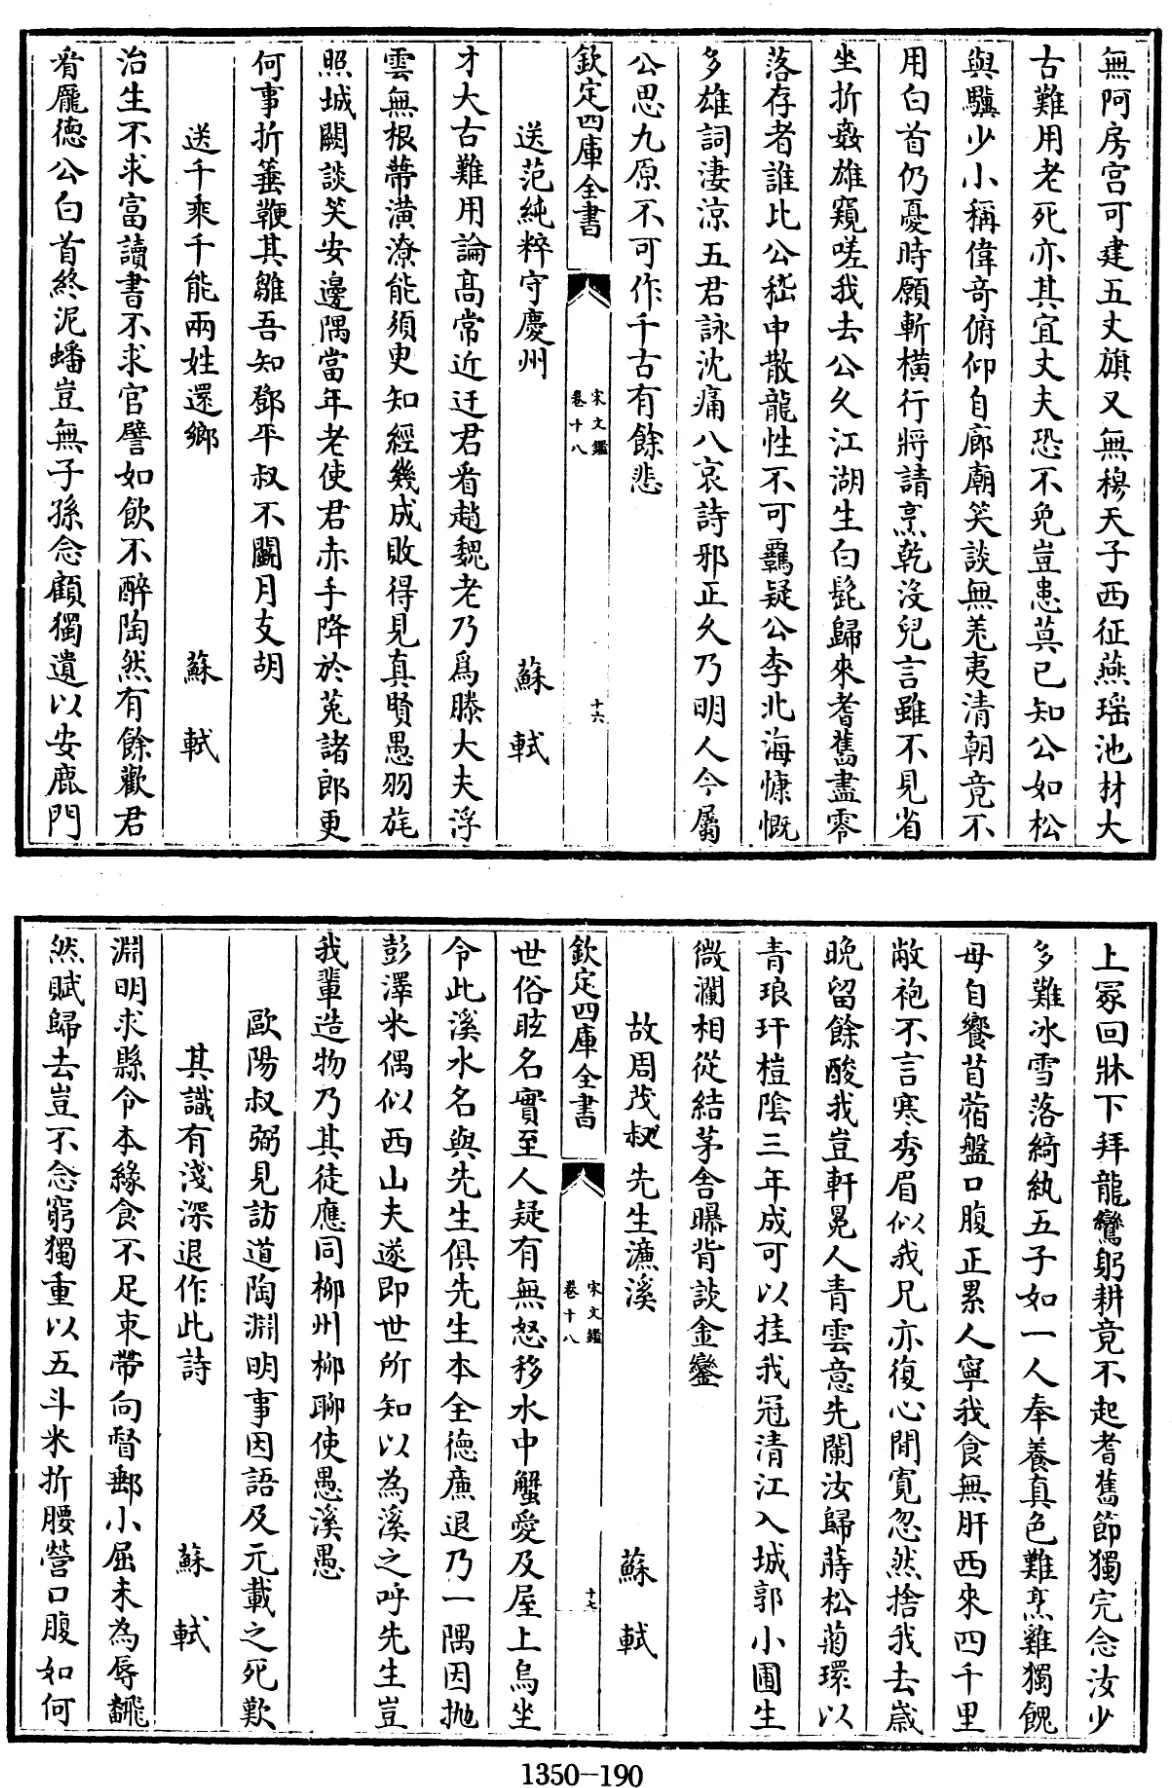 無阿房宫可建五丈旗又無穆天子西征燕瑶池材大
古難用老死亦其宜丈夫恐不免豈患莫已知公如松
與驥少小稱偉奇俯仰自廊廟笑談無羌夷清朝竟不
用白首仍憂時願斬横行將請烹乾沒兒言雖不見省
坐折姦雄窺嗟我去公久江湖生白髭歸來耆舊盡零
落存者誰比公嵇中散龍性不可羈疑公李北海慷慨
多雄詞淒凉五君詠沈痛八哀詩邪正久乃明人今屬
公思九原不可作千古有餘悲
欽定四庫全書
宋文鑑
卷十八
十六
送范純粹守慶州
蘇軾
才大古難用論高常近迂君看趙魏老乃爲滕大夫浮
雲無根蔕潢潦能須臾知經幾成敗得見真賢愚羽旄
照城闕談笑安邊隅當年老使君赤手降於菟諸郎更
何事折箠鞭其雛吾知鄧平叔不鬬月支胡
送千乘千能兩姪還鄉
蘇軾
治生不求富讀書不求官譬如飲不醉陶然有餘歡君
看龐德公白首終泥蟠豈無子孫念顧獨遺以安鹿門
上冡回牀下拜龍鸞躬耕竟不起耆舊節獨完念汝少
多難冰雪落綺紈五子如一人奉養真色難烹雞獨餽
母自饗苜蓿盤口腹正累人寧我食無肝西來四千里
敝袍不言寒秀眉似我兄亦復心閒寛忽然捨我去歳
晚留餘酸我豈軒冕人青雲意先闌汝歸蒔松菊環以
青琅玕榿隂三年成可以挂我冠清江入城郭小圃生
微瀾相從結茅舍曝背談金鑾
故周茂叔先生濂溪
蘇軾
欽定四庫全書
宋文鑑
卷十八
十七
世俗眩名實至人疑有無怒移水中蟹愛及屋上烏坐
令此溪水名與先生俱先生本全德亷退乃一隅因抛
彭澤米偶似西山夫遂即世所知以為溪之呼先生豈
我輩造物乃其徒應同柳州柳聊使愚溪愚
歐陽叔弼見訪道陶淵明事因語及元載之死歎
其識有淺深退作此詩
蘇軾
淵明求縣令本緣食不足束帶向督郵小屈未為辱翻
然賦歸去豈不念窮獨重以五斗米折腰營口腹如何
1350-190